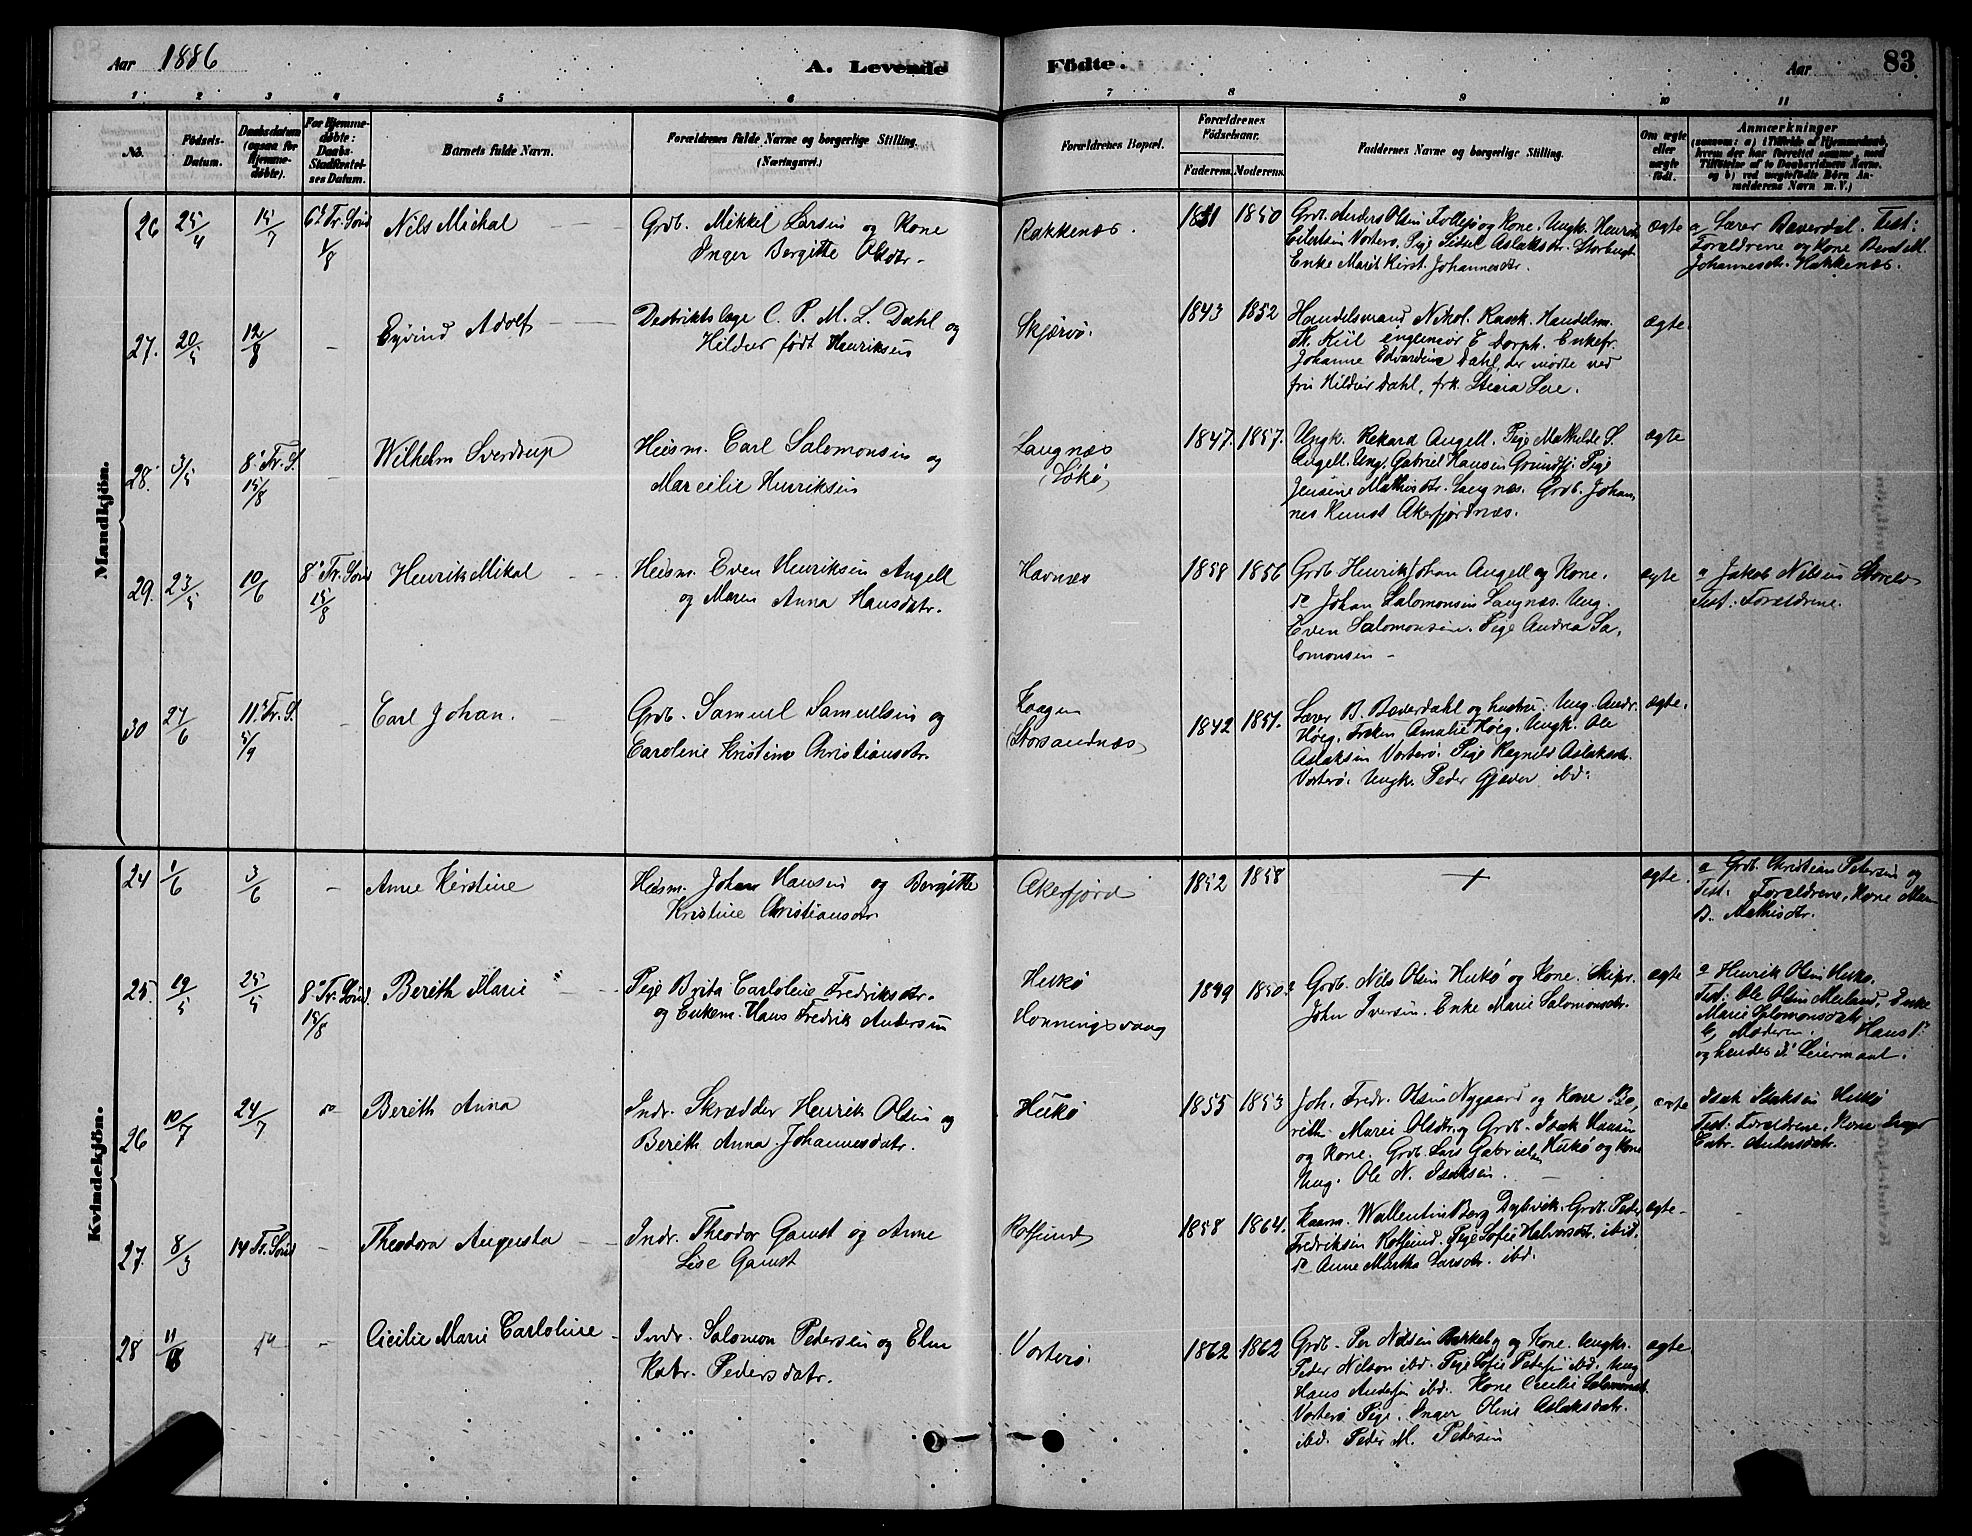 Aar 1886
A. Levende Födte.
Aar 83
1 2 3 4 5 6 7 8 9 10 11
No.
Födsels-
Datum.
Daabsdatum
(ogsaa for
Hjemme-
døbte).
For Hjemme-
døbte:
Daabs-
Stadfæstel-
ses Datum.
Barnets fulde Navn.
Forældrenes fulde Navne og borgerlige Stilling.
(Næringsvei.)
Forældrenes Bopæl.
Forældrenes
Födselsaar.
Faderens. Moderens.
Faddernes Navne og borgerlige Stilling.
Om ægte
eller
uægte
født.
Anmærkninger
(saasom: a) i Tilfælde af Hjemmedaab,
hvem der har forrettet samme, med
Tilføielse af to Daabsvidners Navne,
og b) ved uægtefødte Börn An-
melderens Navn m. V.)
Mandkjön.
26 25/4 15/7 6te Tr. Sönd 1/8 Nils Mickal
Grdb. Mikkel Larsen og Kone
Inger Bergitte Olsdtr.
Rakkenæs.
1851 1850
Grdb. Anders Olsen Follesø og Kone. Ungk. Henrik
Eilertsen Vorterø, Pige Sidsel Aslaksdtr. Storbugt
Enke Marit Kirst. Johannesdtr.
ægte
a Lærer Bæverdal. Test:
Forældrene og Kone Berit M.
Johannesdtr. Hakkenæs.
27. 20/5 12/8 - Eyvind Adolf
Destriktslæge C. P. M. L. Dahl og
Hildur født Henriksen
Skjærvö.
1843 1852
Handelsmand Nikol. Rask. Handelsm.
Th. Kiil engeniør E Dorph. Enkefr.
Johanne Edvardine Dahl, der mødte ved
fru Hildur Dahl, frk. Stina Lie.
ægte
28. 3/5 8de Tr. S. 15/8 - Wilhelm Sverdrup
Huism. Carl Salomonsen og
Marcilie Henriksen
Langnæs
Løkø,
1847. 1857.
Ungk. Rekard Angell. Pige Mathilde S.
Angell. Ung. Gabriel Hansen Grundfj. Pige
Jensine Mathisdtr. Langnes. Grdb. Johan
nes Kunst Akerfjordnæs.
ægte
29. 23/5 10/6 8de Tr. Sönd 15/8 Henrik Mikal
Huism. Even Henriksen Angell
og Maren Anna Hansdatr.
Havnæs
1858 1856
Grdb Henrik Johan Angell og Kone.
do Johan Salomonsen Langnæs. Ung.
Even Salomonsen. Pige Andrea Sa,
lomonsen -
ægte
a Jakob Nilsen
Test: Forældrene.
30 27/6 11te Tr. S. 5/9 - Carl Johan.
Grdb. Samuel Samuelsen og
Caroline Kristine Christiansdtr.
Kaagen
Storsandnæs,
1842 1857.
Lærer B. Bæverdahl og hustru. Ung. Andr.
Høeg. Frøken Amalie Høeg. Ungk. Ole
Aslaksen Vorterø. Pige Ragnild Aslaksdtr.
Vorterø. Ungk. Peder Gjæver ibd.
ægte.
Kvindekjön.
24 1/6 3/6 - Anne Kirstine
Huism. Johan Hansen og Bergitte
Kristine Christiansdtr.
Akerfjord
1852 1858
+
ægte.
a Grdb. Christian Petersen og
Test: Forældrene, Kone Maren
B. Mathisdtr.
25. 19/5 25/5 8de Tr. Sönd. 15/8 Berith Marie
Pige Brita Carloline Fredriksdtr.
og Enkem. Hans Fredrik Andersen
Hukø
Honningsvaag
1849 1850?
Grdb. Nils Olsen Hukø og Kone. Skipr.
John Iversen. Enke Marie Salomonsdtr.
ægte
a Henrik Olsen Hukø.
Test: Ole Olsen Meiland, Enke
Marie Salomonsdatr.
b, Moderen. Hans 1ste
og hendes 2det Leiermaal.
26 10/7 24/7 do Berith Anna
Indr. Skrædder Henrik Olsen og
Berith Anna Johannesdatr.
Hukø
1855 1853
Joh. Fredr. Olsen Nygaard og Kone Be,
rith Marei Olsdtr. Grdb. Isak Hansen
og Kone. Grdb. Lars Gabrielsen Hukø og Kone
Ung. Ole N. Isaksen.
ægte
Isak Isaksen Hukø
Test: Forældrene, Kone Inger
Catr. Andersdatr.
27. 8/3 14 Tr. Sönd - Theodora Augusta
Indr. Theodor Gamst og Anne
Lise Gamst
Rotsund
1858 1864.
Kaarm. Wallentin Berg Dybvik. Grdb. Peder
Fredriksen Rotsund. Pige Sofie Halvorsdtr. ibid.
do Anne Martha Larsdtr. ibd.
ægte
28 11/8 do - Cicilie Marie Carloline
Indr. Salomon Pedersen og Elen
Katr. Pedersdatr.
Vorterø.
1862 1862
Grdb. Per Nilsen Bakkeby og Kone. Ungk.
Peder Nilsen ibd. Pige Sofie Petersen ibd. Ung
Hans Andersen ibd. Kone Cecilie Salomonsd.
Vorterø Pige. Inger Oline Aslaksdatr.
ibd. Peder M. Pedersen
ægte